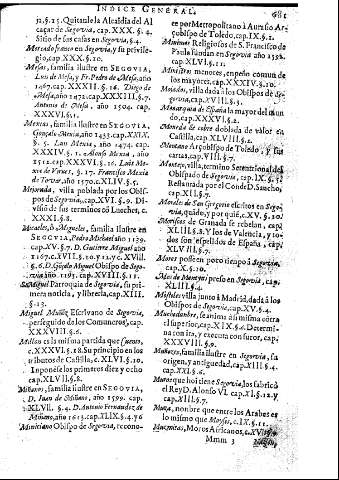 INDICE GENERAL.
681
12. §.25. Quitasele la Alcaldia del Al
caçar de Segovia, cap. XXX. §. 4.
Sitio de sus casas en Segovia, §. 4.
Mercado franco en Segovia, y su privile-
gio, cap. XXX. §. 10.
Mesas, familia ilustre en SEGOVIA,
Luis de Mesa, y Fr. Pedro de Mesa, año
1467. cap. XXXIII. §. 16. Diego de
Mesa, año 1472. cap. XXXIII. §. 7.
Antonio de Mesa, año 1504. cap.
XXXV. §.
Mexias, familia ilustre en SEGOVIA,
Gonçalo Mexia, año 1455. cap. XXIX.
§. 5. Luis Mexia, año 1474. cap.
XXXIV. §. 1. Alonso Mexia, año
1512. cap. XXXVI. §. 16.
de Virues, §. 17. Francisco Mexia
de Tovar, año 1570. cap. XLIV. §. 5.
Mejorada, villa poblada por los Obis-
pos de Segovia, cap. XVI. §. 9. Di-
visiõ de sus terminos cõ Lueches, c.
XXXI. §. 8.
Micaeles, ò Migueles, familia ilustre en
SEGOVIA, Pedro Michael año 1139.
cap. XV. §. 7. D. Gutierre Miguel año
1167. c. XVII. §. 10. y 12. y c. XVIII.
§. 6. D. Gõçalo Miguel Obispo de Sego-
via año 1195. cap. XVIII. §. 11.
S. Miguel Parroquia de Segovia, su pri-
mera noticia, y libreria, cap. XIII.
§. 13.
Miguel Muñoz Escrivano de Segovia,
perseguido de los Comuneros, cap.
XXXVIII. §. 6.
Millon es la misma partida que Cuento,
c. XXXVI. §. 18. Su principio en los
tributos de Castilla, c. XLVI. §. 10.
Inponese los primeros diez y ocho
cap. XLVII. §. 8.
Miñanos, familia ilustre en SEGOVIA,
D. Juan de Miñano, año 1599. cap.
XLVII. §. 4. D. Antonio Fernandez de
Miñano, año 1613. cap. XLIX. §. 4. y 6
Miniciano Obispo de Segovia, recono-
ce por Metropolitano à Aurasio Ar-
çobispo de Toledo, cap. IX. §. 2.
Minimos Religiosos de S. Francisco de
Paula fundan en Segovia año 1592.
cap. XLVI. §. 11.
Ministros menores, enpeño comun de
los mayores, cap. XXXIV. §. 10.
Mojados, villa dada à los Obispos de Se-
govia, cap. XVIII. §. 5.
Monarquia de España la mayor del mun
do, cap. XXXVI. §. 2.
Moneda de cobre doblada de valor en
Castilla, cap. XLVIII. §. 2.
Montano Arçobispo de Toledo, y sus
cartas, cap. VIII. §. 7.
Montejo, villa, termino Setentrional del
Obispado de Segovia, cap. IX. §. 5
Restaurada por el Conde D. Sancho,
cap. XII. §. 7.
Morales de San Gregorio escritos en Sego-
via, quãdo, y por quiẽ, c. XV. §. 20.
Moriscos de Granada se rebelan, cap.
XLIII. §. 8. Y los de Valencia, y to-
dos son espelidos de España, cap.
XLV III. §. 7.
Moros posseen poco tiempo à Segovia,
cap. X. §. 10.
Mos de Montenij preso en Segovia, cap.
XLIII. §. 4.
Mostoles villa junto à Madrid, dada à los
Obispos de Segovia, cap. XV. §. 4.
Muchedumbre, se anima à si misma contra
el superior, cap. XIX. §. 6. Determi-
na con ira, y executa con furor, cap.
XXXVIII. §. 9.
Muñozes, familia ilustre en Segovia, su
origen, y antiguedad, cap. XIII. §. 4.
cap. XXI. §. 6.
Muros que hoi tiene Segovia, los fabricò
el Rey D. Alonso VI. cap XI. §. 12. y
cap. XIII. §. 7.
Muza, nonbre que entre los Arabes es
lo mismo que Moyses, c. IX. §. 11.
Muzmitas, Moros Africanos, c. XVII. §. 4
Mmm 3